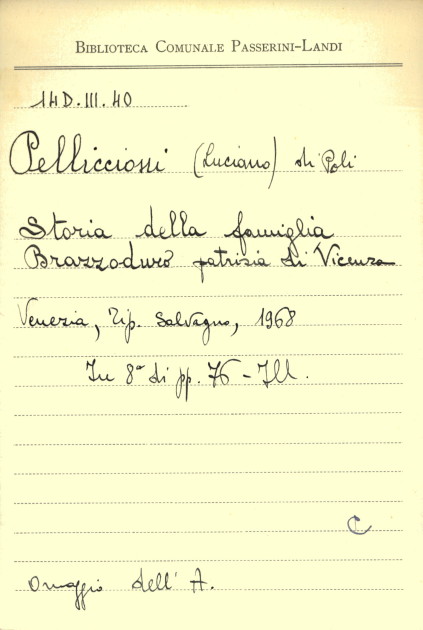 BIBLIOTECA COMUNALE PASSERINI-LANDI
14D.III.40
Pelliccioni (Luciano) di Poli
Storia della famiglia
Brazzoduro patrizia di Vicenza
Venezia, Tip. Salvagno, 1968
In 8° di pp. 76 - Ill.
C
Omaggio dell' A.